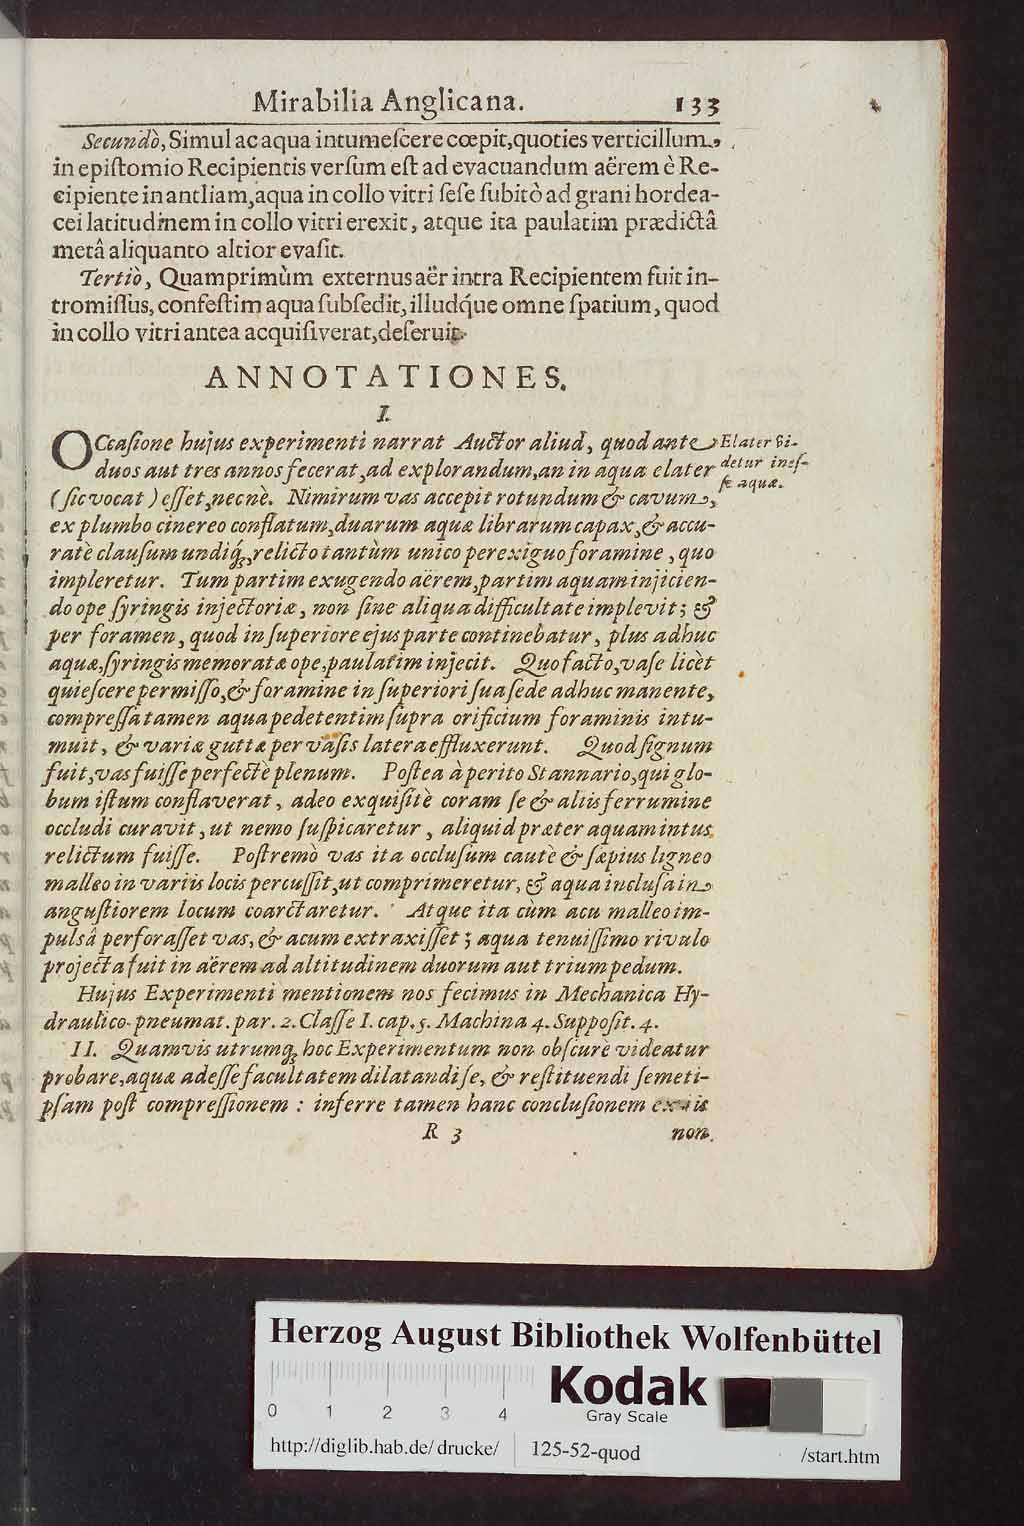 Mirabilia Anglicana. 133
Secundò, Simul ac aqua intumeſcere cœpit, quoties verticillum,
in epiſtomio Recipientis verſum eſt ad evacuandum aërem è Re-
cipiente in antliam, aqua in collo vitri ſeſe ſubitò ad grani hordea-
cei latitudinem in collo vitri erexit, atque ita paulatim prædictâ
metâ aliquanto altior evaſit.
Tertiò, Quamprimùm externus aër intra Recipientem fuit in-
tromiſſus, confeſtim aqua ſubſedit, illudq́ue omne ſpatium, quod
in collo vitri antea acquiſiverat, deſeruit.
ANNOTATIONES.
I.
OCcaſione hujus experimenti narrat Auctor aliud, quod ante
duos aut tres annos fecerat, ad explorandum, an in aqua elater
(ſic vocat) eſſet, necnè. Nimirum vas accepit rotundum & cavum,
ex plumbo cinereo conflatum, duarum aquæ librarum capax, & accu-
ratè clauſum undiq́;, relicto tantùm unico perexiguo foramine, quo
impleretur. Tum partim exugendo aërem, partim aquam injicien-
do ope ſyringis injectoriæ, non ſine aliqua difficultate implevit; &
per foramen, quod in ſuperiore ejus parte continebatur, plus adhuc
aquæ, ſyringis memoratæ ope, paulatim injecit. Quo facto, vaſe licèt
quieſcere permiſſo, & foramine in ſuperiori ſua ſede adhuc manente,
compreſſa tamen aqua pedetentim ſupra orificium foraminis intu-
muit, & variæ guttæ per vaſis latera effluxerunt. Quod ſignum
fuit, vas fuiſſe perfectè plenum. Poſtea à perito Stannario, qui glo-
bum iſtum conflaverat, adeo exquiſitè coram ſe & aliis ferrumine
occludi curavit, ut nemo ſuſpicaretur, aliquid præter aquam intus
relictum fuiſſe. Poſtremò vas ita occluſum cautè & ſæpius ligneo
malleo in variis locis percuſſit, ut comprimeretur, & aqua incluſa in
anguſtiorem locum coarctaretur. Atque ita cùm acu malleo im-
pulsâ perforaſſet vas, & acum extraxiſſet; aqua tenuiſſimo rivulo
projecta fuit in aërem ad altitudinem duorum aut trium pedum.
Hujus Experimenti mentionem nos fecimus in Mechanica Hy-
draulico-pneumat. par. 2. Claſſe I. cap. 5. Machina 4. Suppoſit. 4.
II. Quamvis utrumq; hoc Experimentum non obſcurè videatur
probare, aquæ adeſſe facultatem dilatandi ſe, & reſtituendi ſemeti-
pſam poſt compreſſionem: inferre tamen hanc concluſionem ex iis
R 3 non
Elater vi-
detur ineſ-
ſe aquæ.
Herzog August Bibliothek Wolfenbüttel
0 1 2 3 4
Kodak
Gray Scale
http://diglib.hab.de/drucke/ 125-52-quod /start.htm